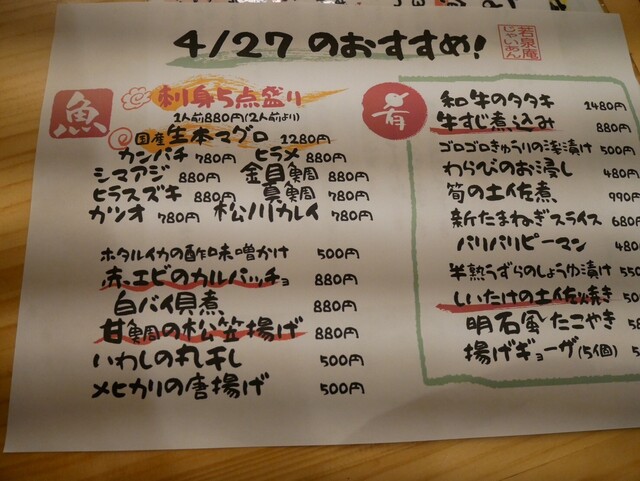 4/27 のおすすめ!
若泉庵
じゃいあん
魚
刺身5点盛り
1人前880円(2人前より)
国産生本マグロ 2280円
カンパチ 780円 ヒラメ 880円
シマアジ 880円 金目鯛 880円
ヒラスズキ 880円 真鯛 780円
カツオ 780円 松川カレイ 780円
ホタルイカの酢味噌かけ 500円
赤エビのカルパッチョ 880円
白バイ貝煮 880円
甘鯛の松笠揚げ 880円
いわしの丸干し 500円
メヒカリの唐揚げ 500円
和牛のタタキ 2480円
牛すじ煮込み 880円
ゴロゴロきゅうりの浅漬け 500円
わらびのお浸し 480円
筍の土佐煮 990円
新たまねぎスライス 680円
パリパリピーマン 480
半熟うずらのしょうゆ漬け 550
しいたけの土佐焼き
明石風たこやき
揚げギョーザ(5個)